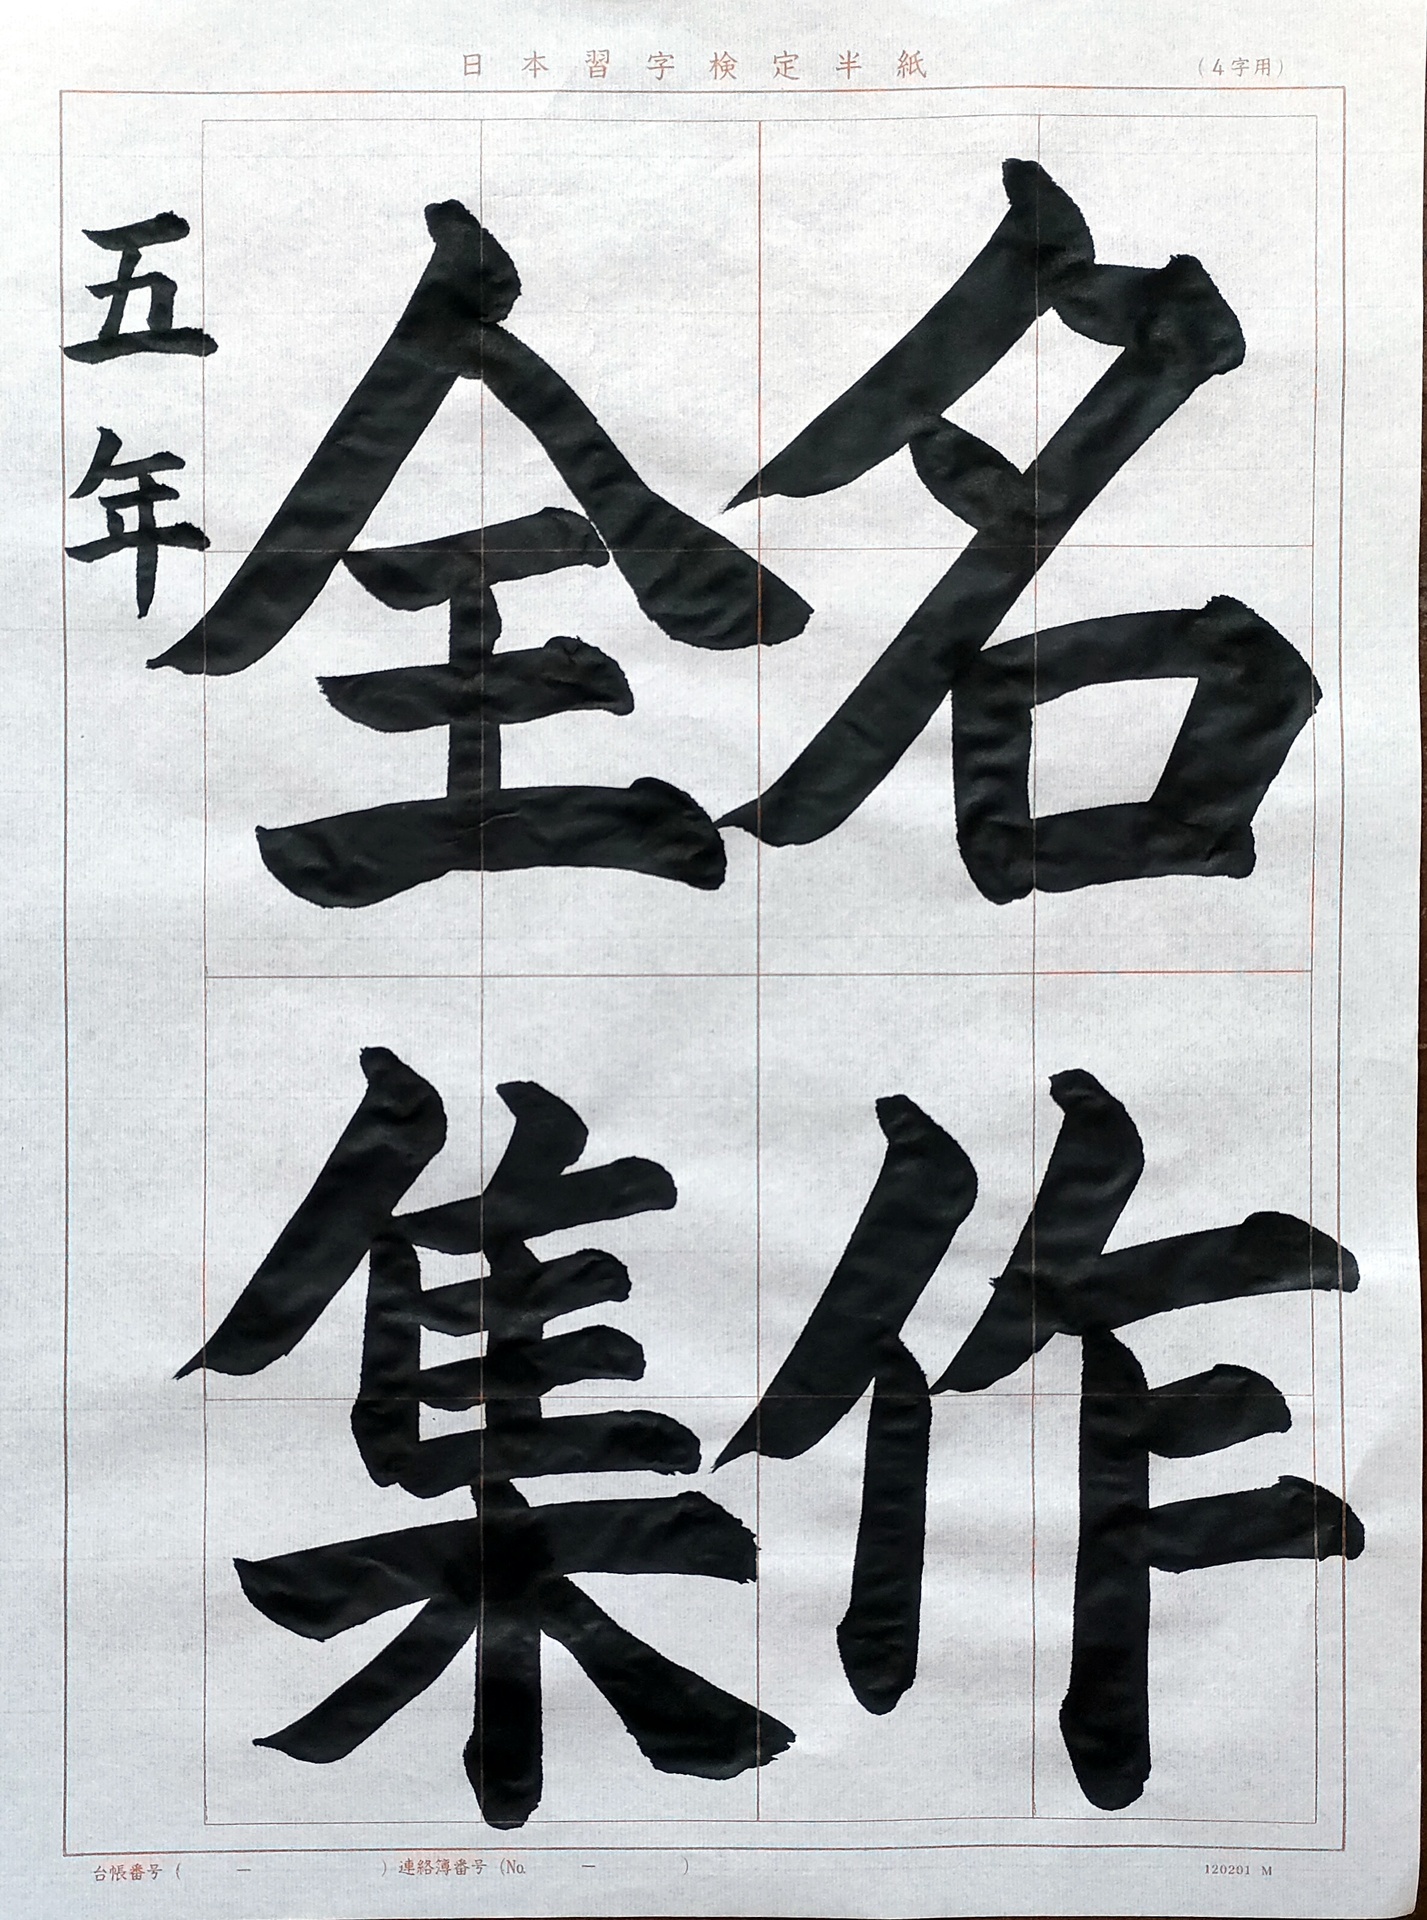 日本習字検定半紙
(4字用)
名作
全集
五年
台帳番号( ー )連絡簿番号(No. ー )
120201 M